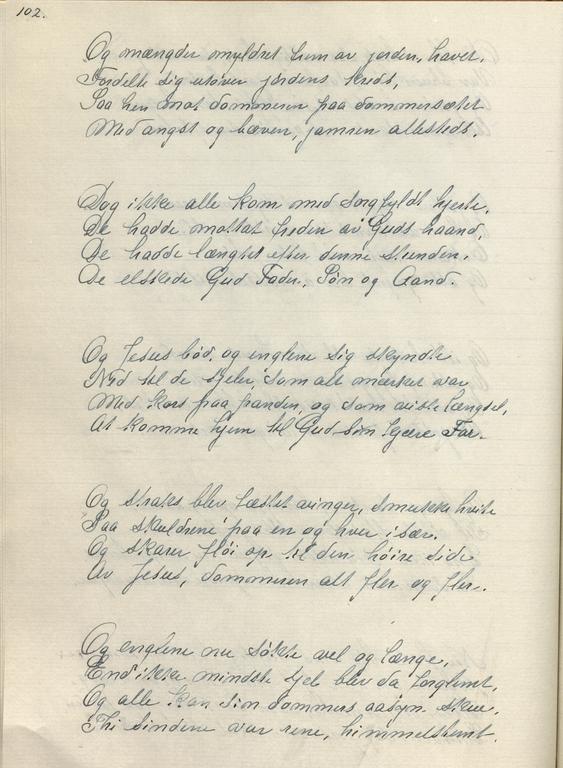 102.
Og mængder myldret hem av jorden, havet,
Fordelte sig utover jordens kreds,
Saa hen mot dommeren paa dommersætet
Med angst og bæven, jamren allesteds.
Dog ikke alle kom med sorgfyldt hjerte,
De hadde mottat freden av Guds haand,
De hadde længtet efter denne stunden,
De elskede Gud Fader, Søn og Aand.
Og Jesus bød, og englene sig skyndte
Ned til de sjele, som alt merket var
Med kors paa panden, og som viste længsel,
At komme hjem til Gud sin kjære Far.
Og straks blev fæstet vinger, smukke hvite
Paa skuldrene paa en og hver især.
Og skarer fløi op til den høire side
Av Jesus, dommeren alt fler og fler.
Og englene nu søkte vel og længe,
End ikke mindste sjel blev da forglemt,
Og alle kan sin dommers aasyn skue,
Thi sindene var rene, himmelstemt.